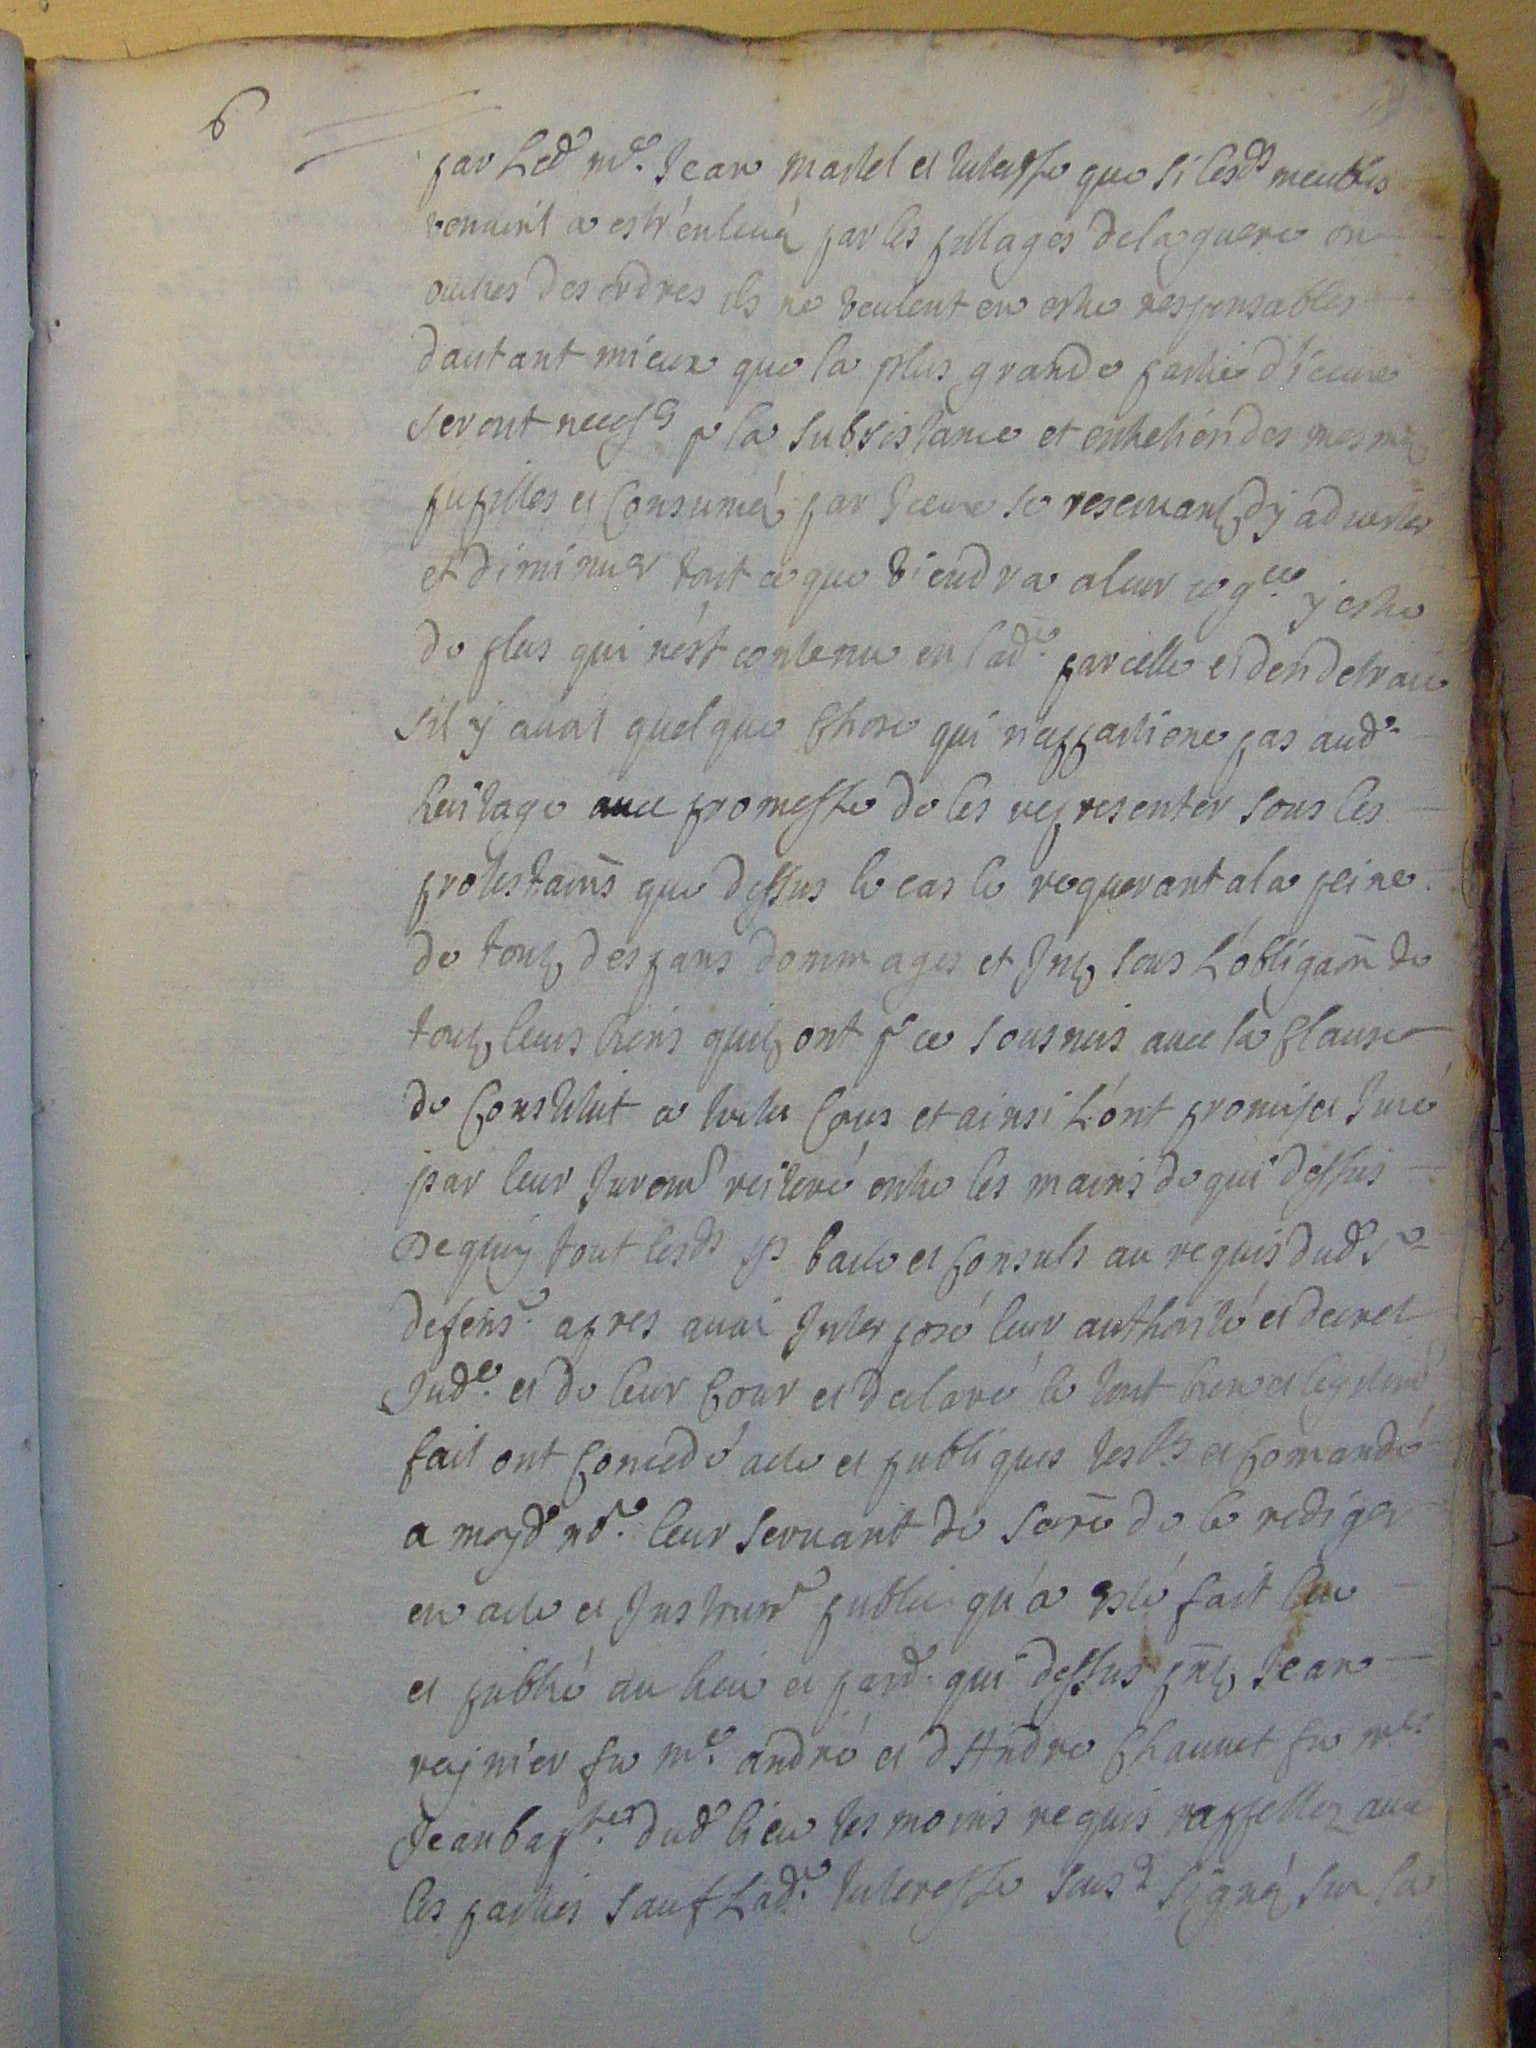 6
par Led me. Jean martel et tuteresse que si lesds meubles
venoint a estr'enlevés par les pillages dela guere ou
autres desordres ils ne veulent en estre responsables
dautant mieux que la plus grande partie d'iceux
seront necesrs pr la subsistance et entretiendes mesmes
pupilles et Consumés par Iceux se reservants d'y adiouster
et diminuer tout ce que viendra aleur cogce. y estre
de plus qui n'est contenu en lade. parcelle et den detraire
s'il y avait quelque Chose qui n'appartiene pas aud.
heritage avec promesse de les representer sous les
protestaons que dessus le cas le requerant ala peine
de touts despans dommages et Ints sous L'obligaon de
touts leurs biens quils ont pr ce sousmis avec la Clause
de Constitut a toutes Cours et ainsi L'ont promis et Juré
par leur Jurem reiteré entre les mains de qui dessus
De quoy tout lesds srs baile et Consuls au requis dud sr
defensr. apres avoir Interposé leur authorité et decret
Jude. et de leur Cour et declaré le tout bien et legitemt
fait ont Concedé acte et publiques lesres et Comandé
a moyd nre. leur servant de Sacre de le rediger
en acte et Instrumt public qu'a esté fait leu
et publié au lieu et pard. qui dessus pnts Jean
reynier fu me. andré et d'Andre Chauvet fu me
Jeanbapte. dud lieu tesmoins requis rappellez avec
les parties sauf Lade. tuteresse sousd signés sur la